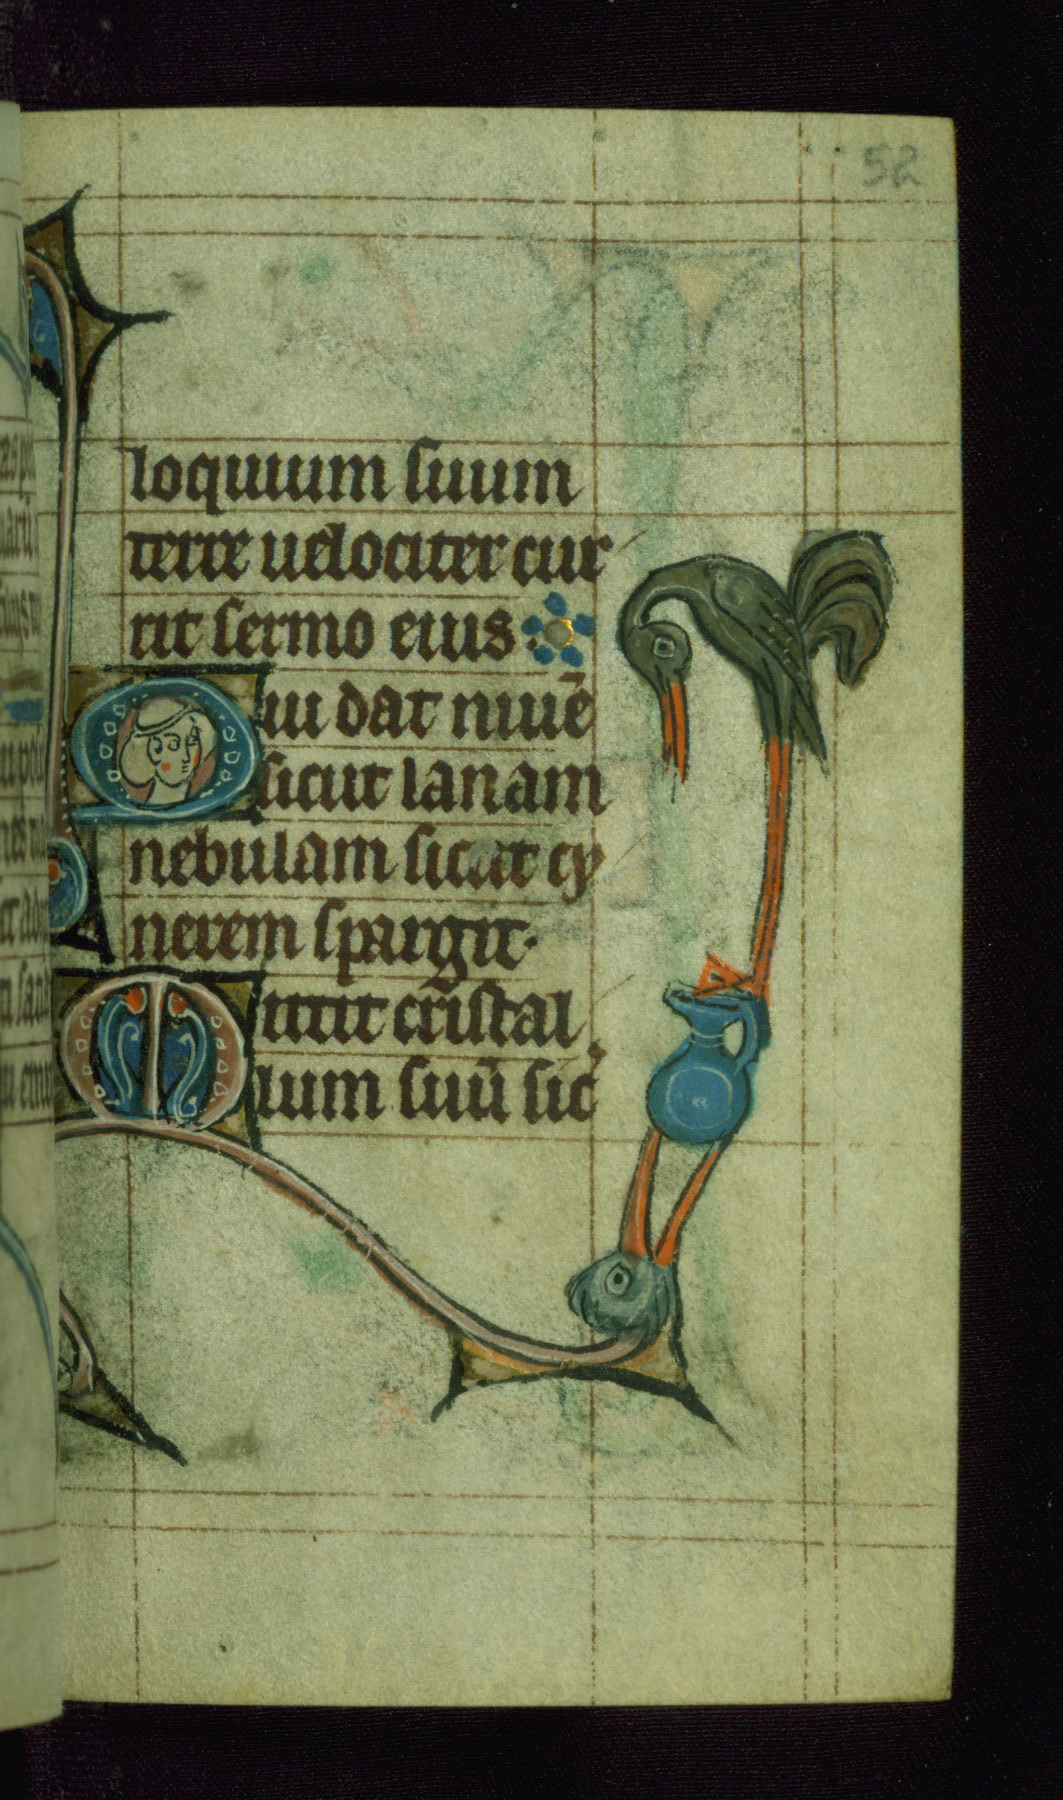 52
loquium suum
terre uelociter cur
rit sermo eius
Qui dat niuē
sicut lanam
nebulam sicut cy
nerem spargit.
Mittit cristal
lum suū sic̄